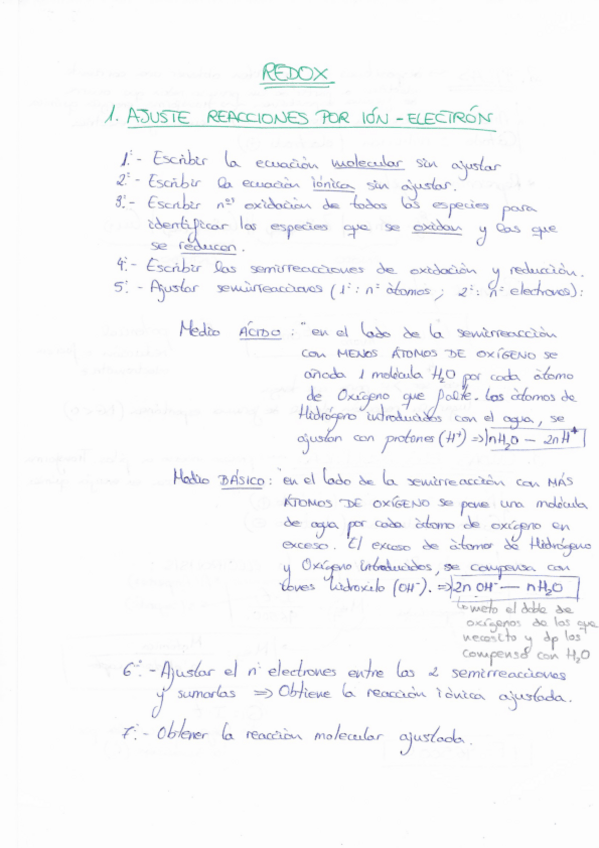 REDOX
1. AJUSTE REACCIONES POR IÓN-ELECTRÓN
1º- Escribir la ecuación molecular sin ajustar
2º- Escribir la ecuación iónica sin ajustar.
3º- Escribir nºs oxidación de todas las especies para
identificar las especies que se oxidan y las que
se reducen.
4º- Escribir las semirreacciones de oxidación y reducción.
5º- Ajustar semirreacciones (1º: nº átomos ; 2º: nº electrones):
Medio ÁCIDO : "en el lado de la semirreacción
con MENOS ÁTOMOS DE OXÍGENO se
añada 1 molécula H₂O por cada átomo
de Oxígeno que falte. Los átomos de
Hidrógeno introducidos con el agua, se
ajustan con protones (H⁺) ⇒ nH₂O – 2nH⁺
Medio BÁSICO : "en el lado de la semirreacción con MÁS
ÁTOMOS DE OXÍGENO se pone una molécula
de agua por cada átomo de oxígeno en
exceso. El exceso de átomos de Hidrógeno
y Oxígeno introducidos, se compensa con
iones hidroxilo (OH⁻). ⇒ 2n OH⁻ — nH₂O
meto el doble de
oxígenos de los que
necesito y dp los
compenso con H₂O
6º- Ajustar el nº electrones entre las 2 semirreacciones
y sumarlas ⇒ Obtiene la reacción iónica ajustada.
7º- Obtener la reacción molecular ajustada.